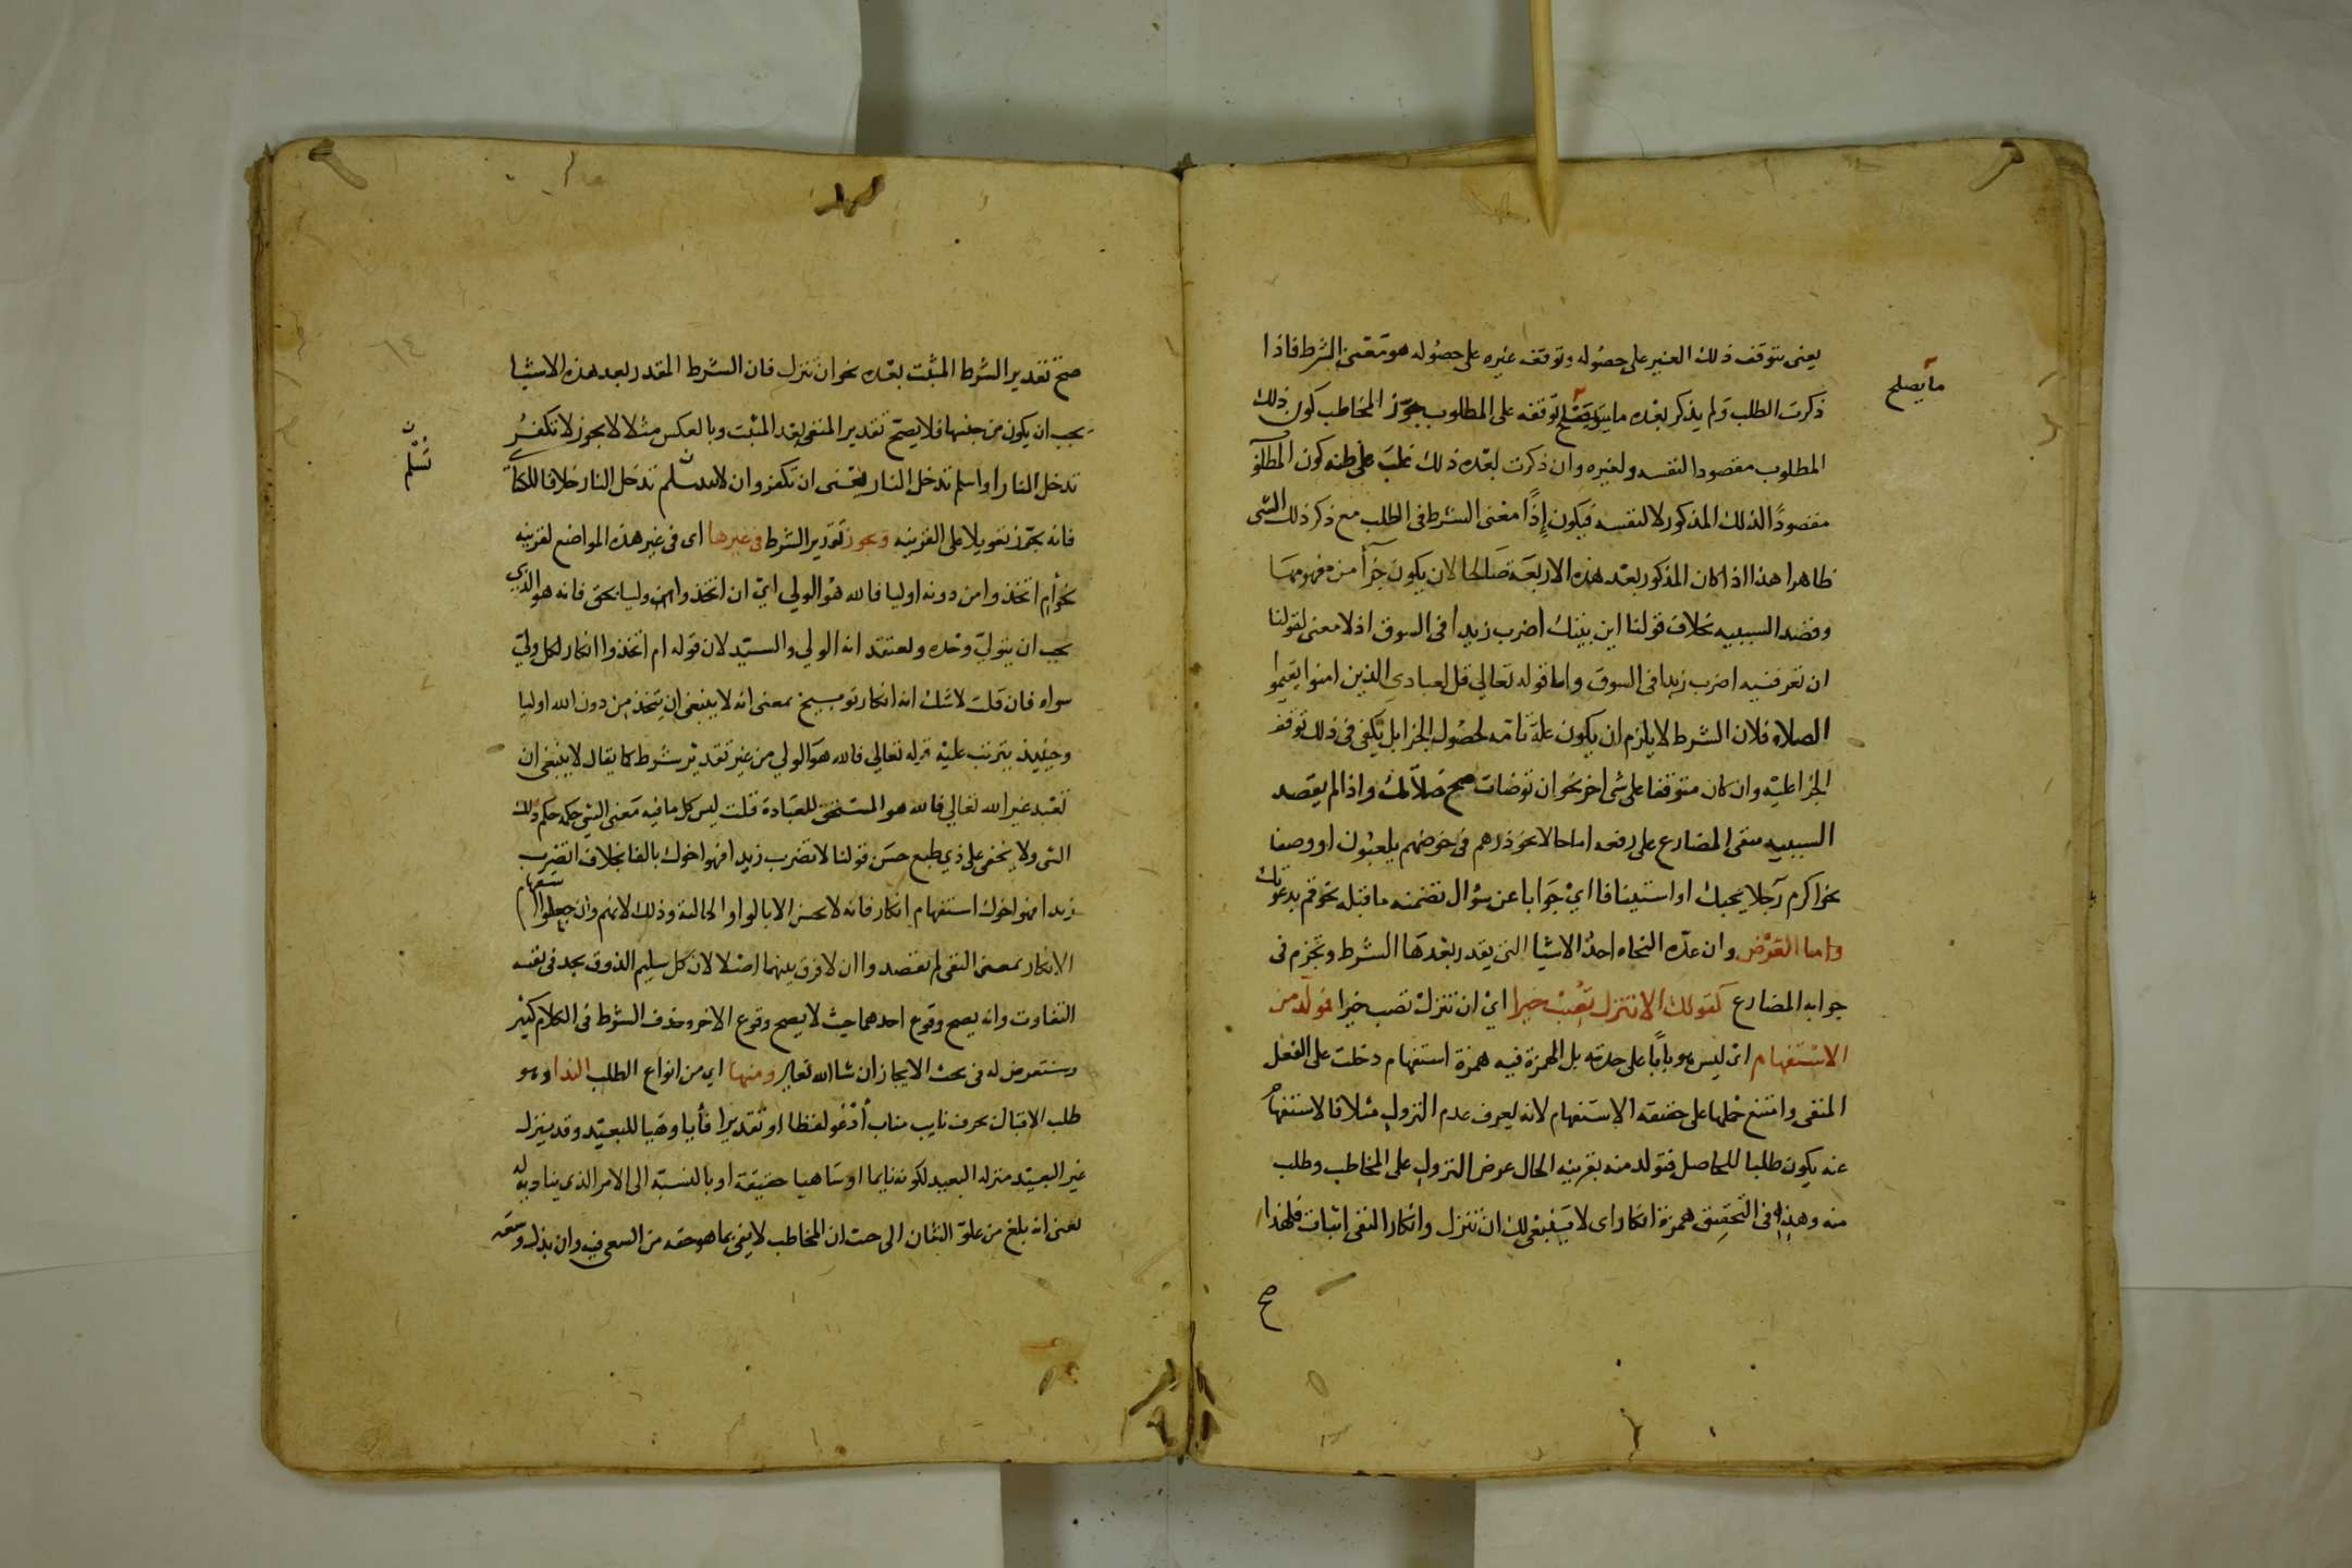 يعنى يتوقف ذلك الغير على حصوله وتوقف غيره على حصوله هو معنى الشرط فاذا
ذكرت الطلب ولم يذكر بعده ما يصلح توقفه على المطلوب جوز المخاطب كون ذلك
ما يصلح
المطلوب مقصودا لنفسه ولغيره وان ذكرت بعده ذلك غلب على ظنه كون المطلو
مقصودًا لذلك المذكور لا لنفسه فيكون إذًا معنى الشرط فى الطلب مع ذكر ذلك الشى
ظاهرا هذا اذا كان المذكور بعد هذه الاربعة صالحا لان يكون جزآ من مفهومها
وقصد السببيه بخلاف قولنا اين بيتك اضرب زيدا فى السوق اذ لا معنى لقولنا
ان تعرفنيه اضرب زيدا فى السوق واما قوله تعالي قل لعبادي الذين امنوا يقيموا
الصلاه فلان الشرط لا يلزم ان يكون علة تامه لحصول الجزا بل يكفى فى ذلك توقف
الجزا عليه وان كان متوقفا على شى اخر نحو ان توضات صح صلاتك واذا لم يقصد
السببيه بقى المضارع على رفعه اما حالا نحو ذرهم فى خوضهم يلعبون او وصفا
نحو اكرم رجلا يحبك او استينافا اي جوابا عن سؤال تضمنه ما قبله نحو قم يدعونك
واما العرض وان عده النحاه احد الاشيا التى يقدر بعدها الشرط وتجزم فى
جوابه المضارع كقولك الا تنزل تصب خيرا اي ان تنزل تصب خيرا فمولد من
الاستفهام اى ليس هو بابا على حدته بل الهمزة فيه همزة استفهام دخلت على الفعل
المنفى وامتنع حملها على حقيقه الاستفهام لانه يعرف عدم النزول مثلا فالاستفهام
عنه يكون طلبا للحاصل فتولد منه بقرينه الحال عرض النزول على المخاطب وطلب
منه وهذه فى التحقيق همزة انكار اى لا ينبغى لك ان تنزل وانكار النفى اثبات فلهذا
صح
صح تقدير الشرط المثبت بعده نحو ان تنزل فان الشرط المقدر بعد هذه الاشيا
يجب ان يكون من جنسها فلا يصح تقدير المنفى بعد المثبت وبالعكس مثلا لا يجوز لا تكفر
تدخل النار او اسلم تدخل النار يعنى ان تكفر وان لا تسلم تدخل النار خلافا للكسا
تسلم
فانه يجوز تعويلا على القرينه ويجوز تقدير الشرط فى غيرها اى فى غير هذه المواضع لقرينه
نحو أم اتخذوا من دونه اوليا فالله هو الولي اي ان اتخذوا وليا بحق فانه هو الذي
يجب ان يتولي وحده ويعتقد انه الولي والسيد لان قوله ام اتخذوا انكار لكل ولي
سواه فان قلت لا شك انه انكار توبيخ بمعنى انه لا ينبغى ان يتخذ من دون الله اوليا
وحينيذ يترتب عليه قوله تعالي فالله هو الولي من غير تقدير شرط كما يقال لا ينبغى ان
تعبد غير الله تعالي فالله هو المستحق للعبادة قلت ليس كل ما فيه معنى الشى حكمه حكم ذلك
الشى ولا يخفى على ذي طبع حسن قولنا لا تضرب زيدا فهو اخوك بالفا بخلاف اتضرب
زيدا فهو اخوك استفهام انكار فانه لا يحسن الا بالواو الحالية وذلك لانهم وان جعلوا استفهام
الانكار بمعنى النفى لم يقصدوا ان لا فرق بينهما اصلا لان كل سليم الذوق يجد فى نفسه
التفاوت وانه يصح وقوع احدهما حيث لا يصح وقوع الاخر وحذف الشرط فى الكلام كثير
وسنتعرض له فى بحث الايجاز ان شا الله تعالي ومنها اي من انواع الطلب الندا وهو
طلب الاقبال بحرف نايب مناب أدعو لفظا او تقديرا فأيا وهيا للبعيد وقد ينزل
غير البعيد منزله البعيد لكونه نايما او ساهيا حقيقة او بالنسبة الى الامر الذي يناديه له
يعنى انه بلغ من علو الشان الى حيث ان المخاطب لا يفى بما هو حقه من السعى فيه وان بذل وسعه